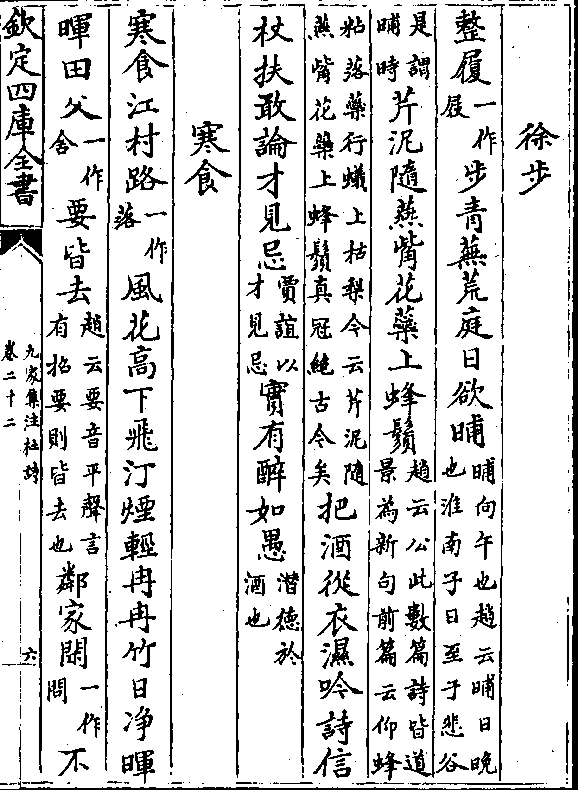 徐步
整履一作屐步青蕪荒庭日欲晡晡向午也趙云晡日晚也淮南子日至于悲谷
是謂晡時芹泥隨燕觜花蘂上蜂鬚趙云公此數篇詩皆道景為新句前篇云仰蜂
粘落蘂行蟻上枯梨今云芹泥隨燕觜花蘂上蜂鬚真冠絶古今矣把酒從衣濕吟詩信
杖扶敢論才見忌賈誼以才見忌實有醉如愚潛德於酒也
寒食
寒食江村路一作落風花高下飛汀煙輕冉冉竹日净暉
暉田父一作舍要皆去趙云要音平聲言有招要則皆去也鄰家閙一作問不
欽定四庫全書
九家集注杜詩
卷二十二
六